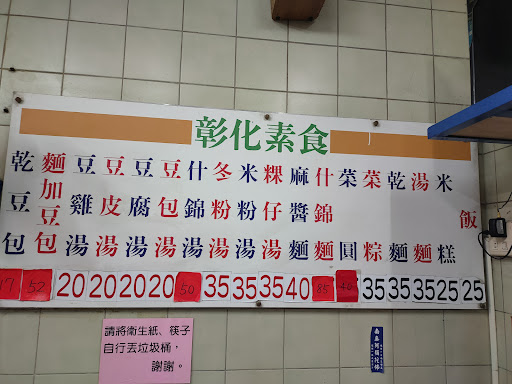 彰化素食
乾豆包
麵加豆包
豆雞湯
豆皮湯
豆腐湯
豆包湯
什錦湯
冬粉湯
米粉湯
粿仔湯
麻醬麵
什錦麵
菜圓
菜粽
乾麵
湯麵
米糕
飯
17 52 20 20 20 20 50 35 35 35 40 85 40 35 35 35 25 25
請將衛生紙、筷子
自行丟垃圾桶，
謝謝。
南無阿彌陀佛